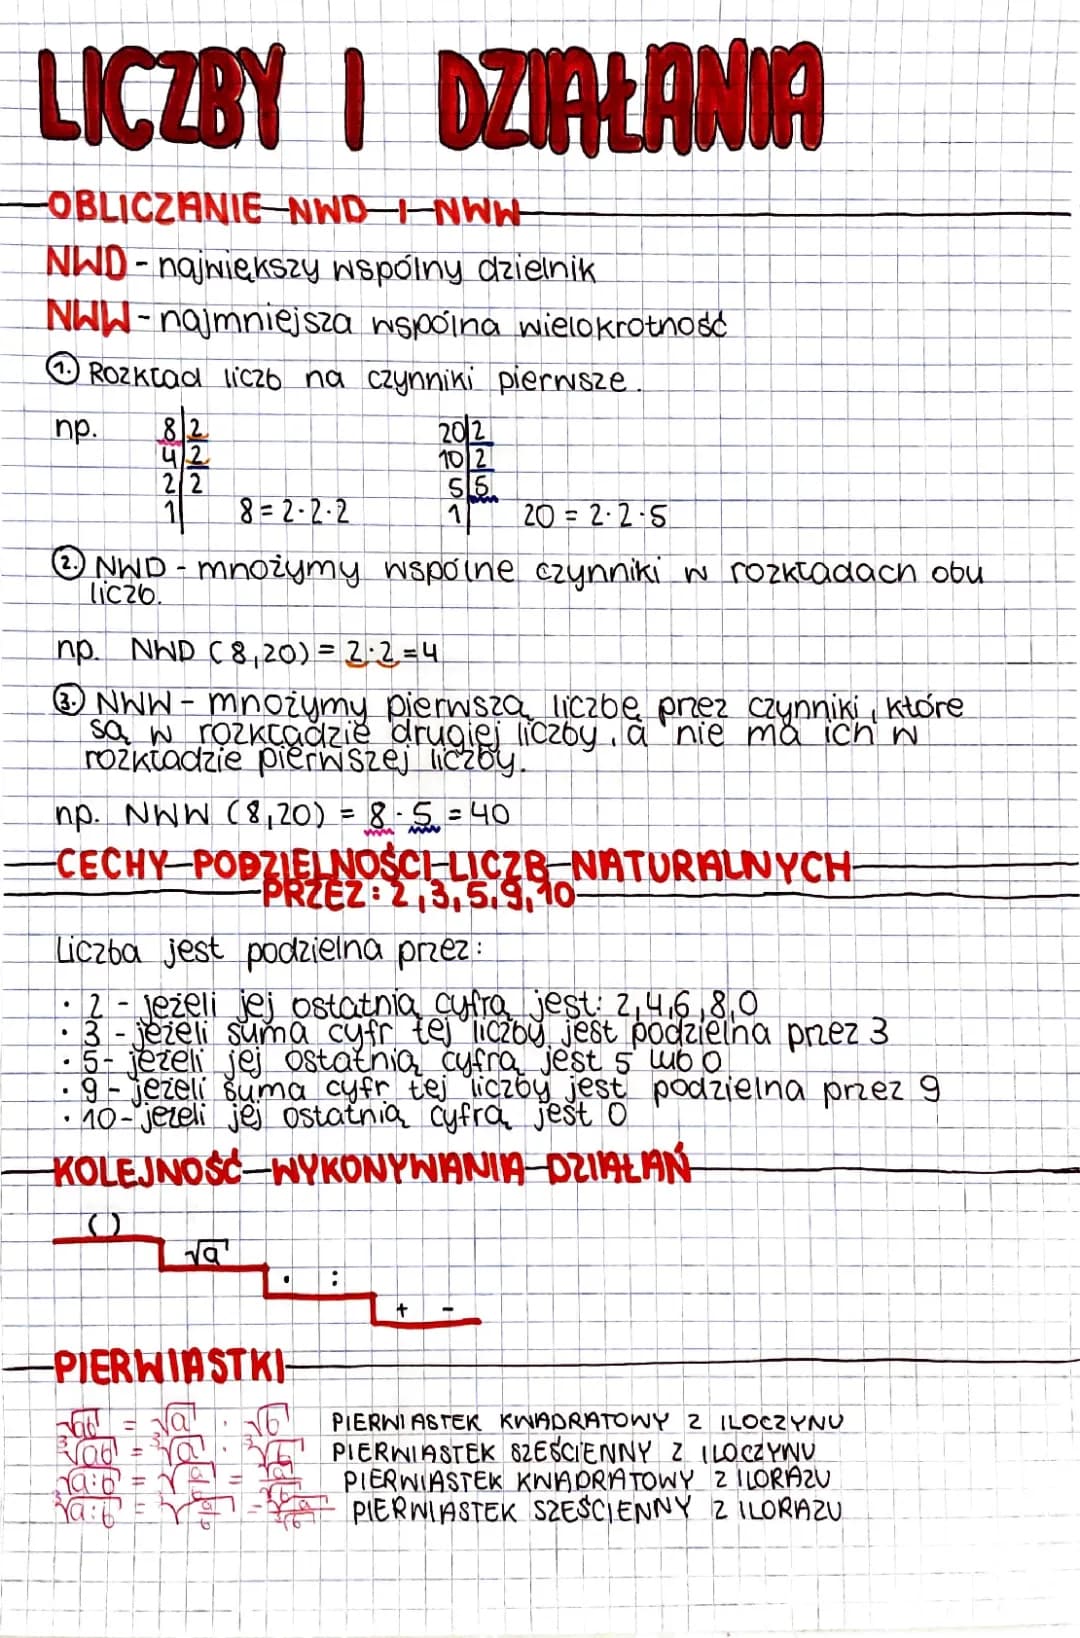 LICZBY I DZIAŁANIA
OBLICZANIE NWD I NWW
NWD - największy wspólny dzielnik
NWW - najmniejsza wspólna wielokrotność
1. Rozkład liczb na czynniki pierwsze.
np. 8|2 20|2
4|2 10|2
2|2 5|5
1| 8 = 2·2·2 1| 20 = 2·2·5
2. NWD - mnożymy wspólne czynniki w rozkładach obu
liczb.
np. NWD (8,20) = 2·2=4
3. NWW - mnożymy pierwszą liczbę przez czynniki, które
są w rozkładzie drugiej liczby, a nie ma ich w
rozkładzie pierwszej liczby.
np. NWW (8,20) = 8·5 = 40
CECHY PODZIELNOŚCI LICZB NATURALNYCH
PRZEZ: 2,3,5,9,10
Liczba jest podzielna przez:
· 2 - jeżeli jej ostatnią cyfrą jest: 2,4,6,8,0
· 3 - jeżeli suma cyfr tej liczby jest podzielna przez 3
· 5 - jeżeli jej ostatnią cyfrą jest 5 lub 0
· 9 - jeżeli suma cyfr tej liczby jest podzielna przez 9
· 10 - jeżeli jej ostatnią cyfrą jest 0
KOLEJNOŚĆ WYKONYWANIA DZIAŁAŃ
()
√a
· :
+ -
PIERWIASTKI
√ab = √a · √b PIERWIASTEK KWADRATOWY Z ILOCZYNU
³√ab = ³√a · ³√b PIERWIASTEK SZEŚCIENNY Z ILOCZYNU
√a:b = √a/b = √a/√b PIERWIASTEK KWADRATOWY Z ILORAZU
³√a:b = ³√a/b = ³√a/³√b PIERWIASTEK SZEŚCIENNY Z ILORAZU